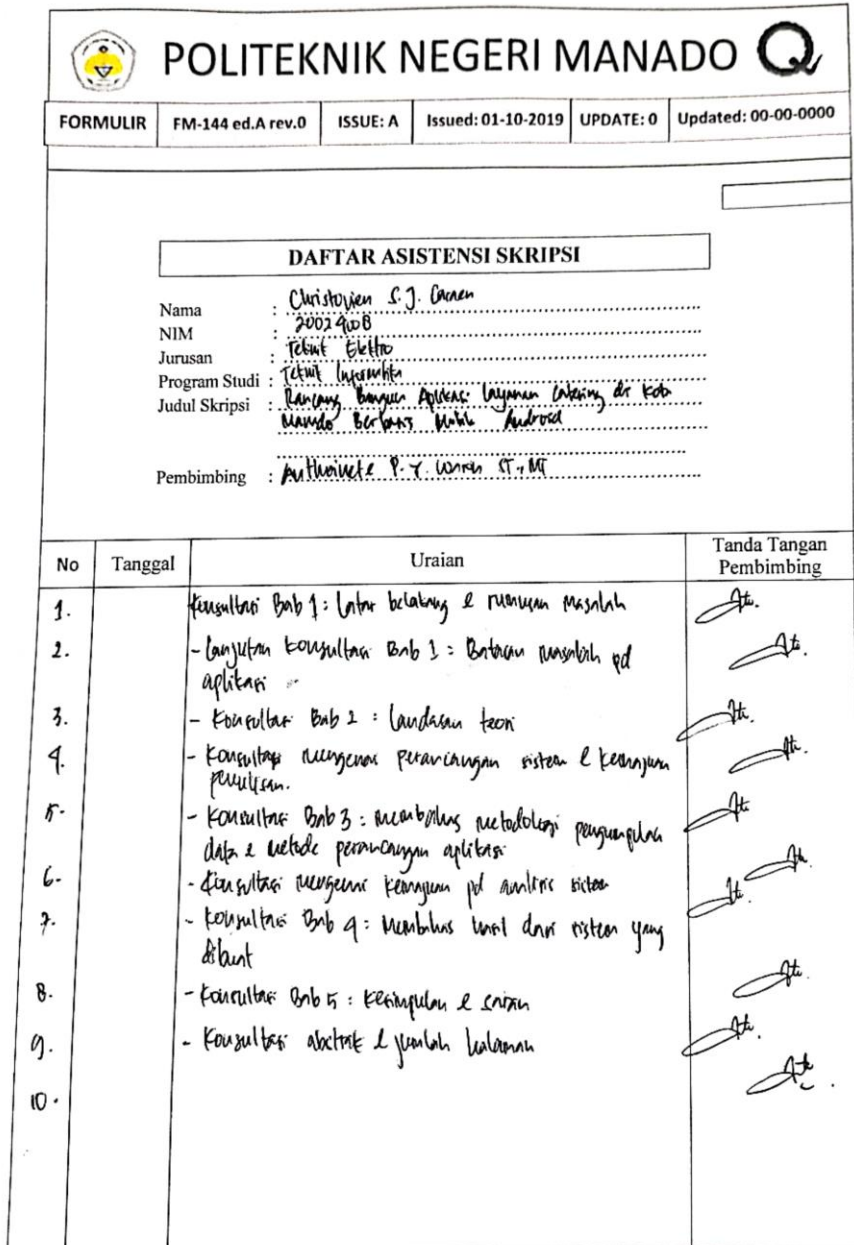 POLITEKNIK NEGERI MANADO
FORMULIR FM-144 ed.A rev.0 ISSUE: A Issued: 01-10-2019 UPDATE: 0 Updated: 00-00-0000
DAFTAR ASISTENSI SKRIPSI
Nama : Christovien S.J.
NIM :
Jurusan : Teknik Elektro
Program Studi : Teknik Informatika
Judul Skripsi : Rancang Bangun Aplikasi Layanan Catering di Kota
Manado Berbasis Mobile Android
Pembimbing : P. Y. ST., MT
No Tanggal Uraian Tanda Tangan
Pembimbing
1. Konsultasi Bab 1 : Latar belakang & rumusan masalah
2. - Lanjutan konsultasi Bab 1 : Batasan masalah pd
aplikasi
3. - Konsultasi Bab 2 : Landasan teori
4. - Konsultasi mengenai perancangan sistem & kemajuan
penulisan.
5. - Konsultasi Bab 3 : membahas metodologi pengumpulan
data & metode perancangan aplikasi
6. - Konsultasi mengenai kemajuan pd analisis sistem
7. - Konsultasi Bab 4 : Membahas hasil dari sistem yang
dibuat
8. - Konsultasi Bab 5 : Kesimpulan & saran
9. - Konsultasi abstrak & jumlah halaman
10.